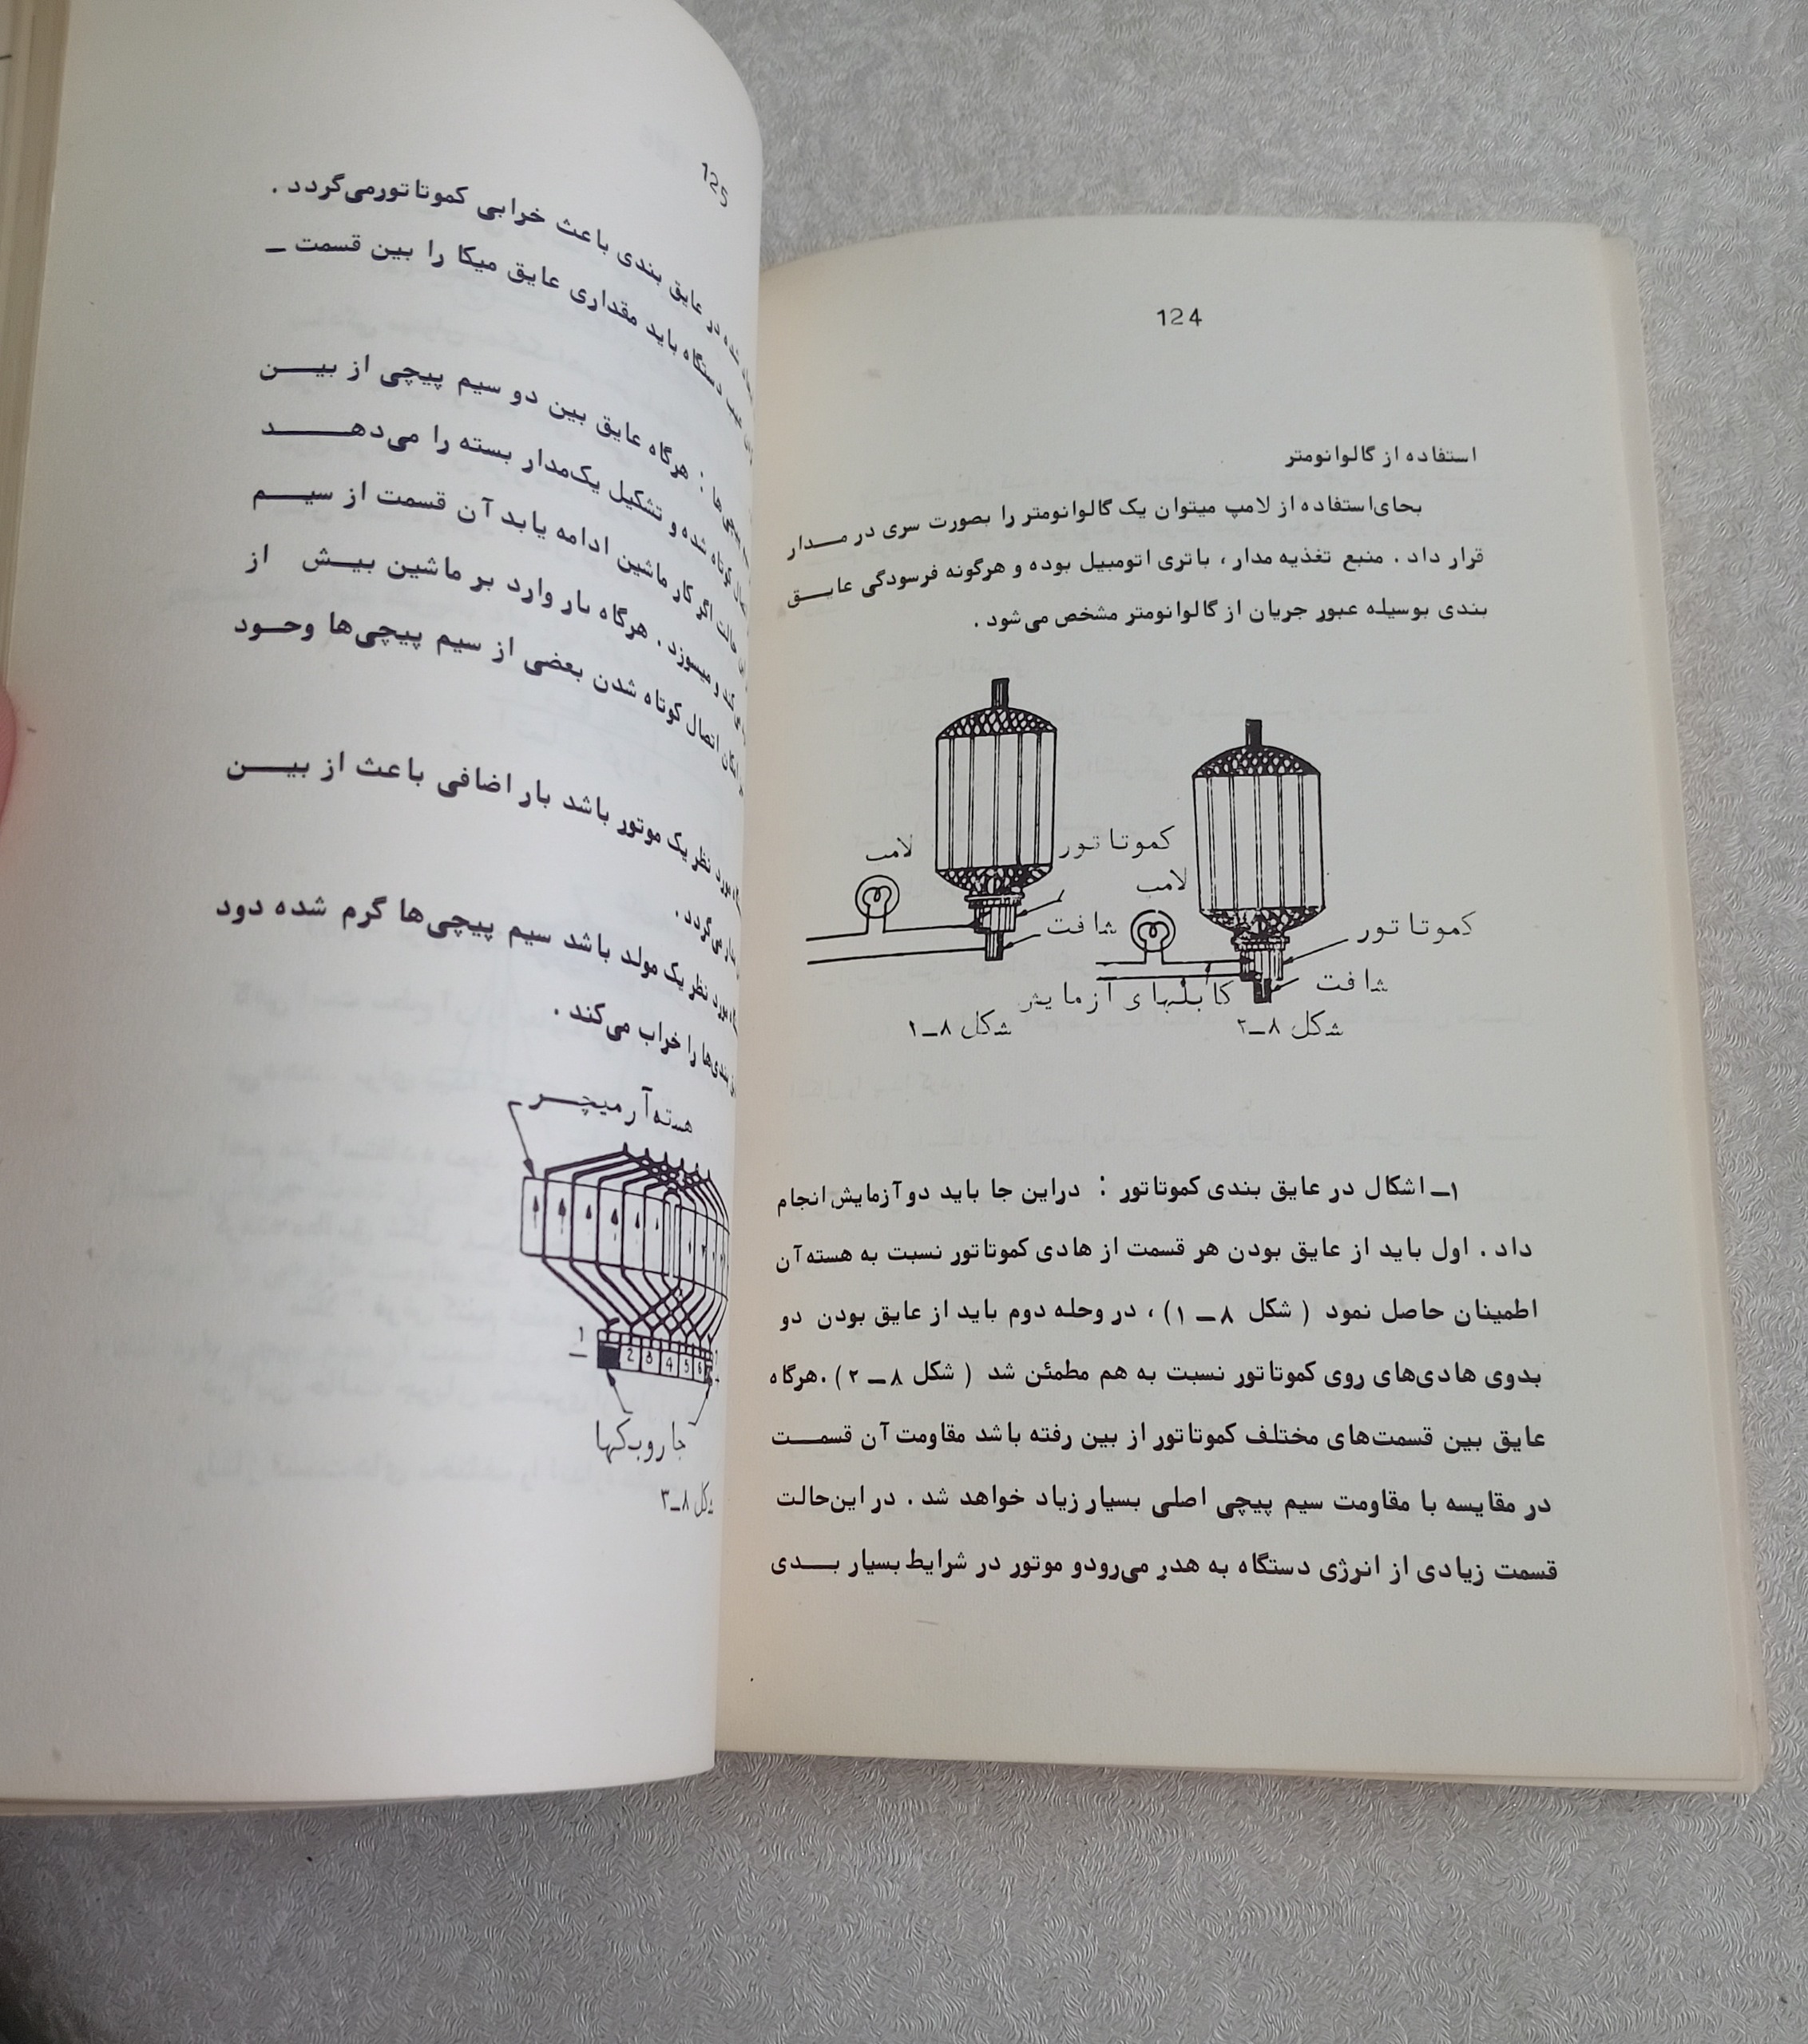 124
استفاده از گالوانومتر
بحای استفاده از لامپ میتوان یک گالوانومتر را بصورت سری در مدار
قرار داد . منبع تغذیه مدار ، باتری اتومبیل بوده و هرگونه فرسودگی عایق
بندی بوسیله عبور جریان از گالوانومتر مشخص می‌شود .
لامپ
کموتاتور
لامپ
شافت
کموتاتور
شافت
کابلهای آزمایش
شکل ۸ـ۱
شکل ۸ـ۲
۱ـ اشکال در عایق بندی کموتاتور : دراین جا باید دو آزمایش انجام
داد . اول باید از عایق بودن هر قسمت از هادی کموتاتور نسبت به هسته آن
اطمینان حاصل نمود ( شکل ۸ ـ ۱) ، در وحله دوم باید از عایق بودن دو
بدوی هادی‌های روی کموتاتور نسبت به هم مطمئن شد ( شکل ۸ ـ ۲) .هرگاه
عایق بین قسمت‌های مختلف کموتاتور از بین رفته باشد مقاومت آن قسمت
در مقایسه با مقاومت سیم پیچی اصلی بسیار زیاد خواهد شد . در این‌حالت
قسمت زیادی از انرژی دستگاه به هدر می‌رودو موتور در شرایط بسیار بدی
125
شده در عایق بندی باعث خرابی کموتاتورمی‌گردد .
عیب دستگاه باید مقداری عایق میکا را بین قسمت ـ
پیچی‌ها : هرگاه عایق بین دو سیم پیچی از بین
کوتاه شده و تشکیل یک‌مدار بسته را می‌دهد
حالت اگر کار ماشین ادامه یابد آن قسمت از سیم
و میسوزد . هرگاه بار وارد بر ماشین بیش از
امکان اتصال کوتاه شدن بعضی از سیم پیچی‌ها وحود
مورد نظر یک موتور باشد بار اضافی باعث از بین
می‌گردد .
مورد نظر یک مولد باشد سیم پیچی‌ها گرم شده دود
بندی‌ها را خراب می‌کند .
هسته آرمیچر
1 2 3 4 5 6
جاروبکها
شکل ۸ـ۳